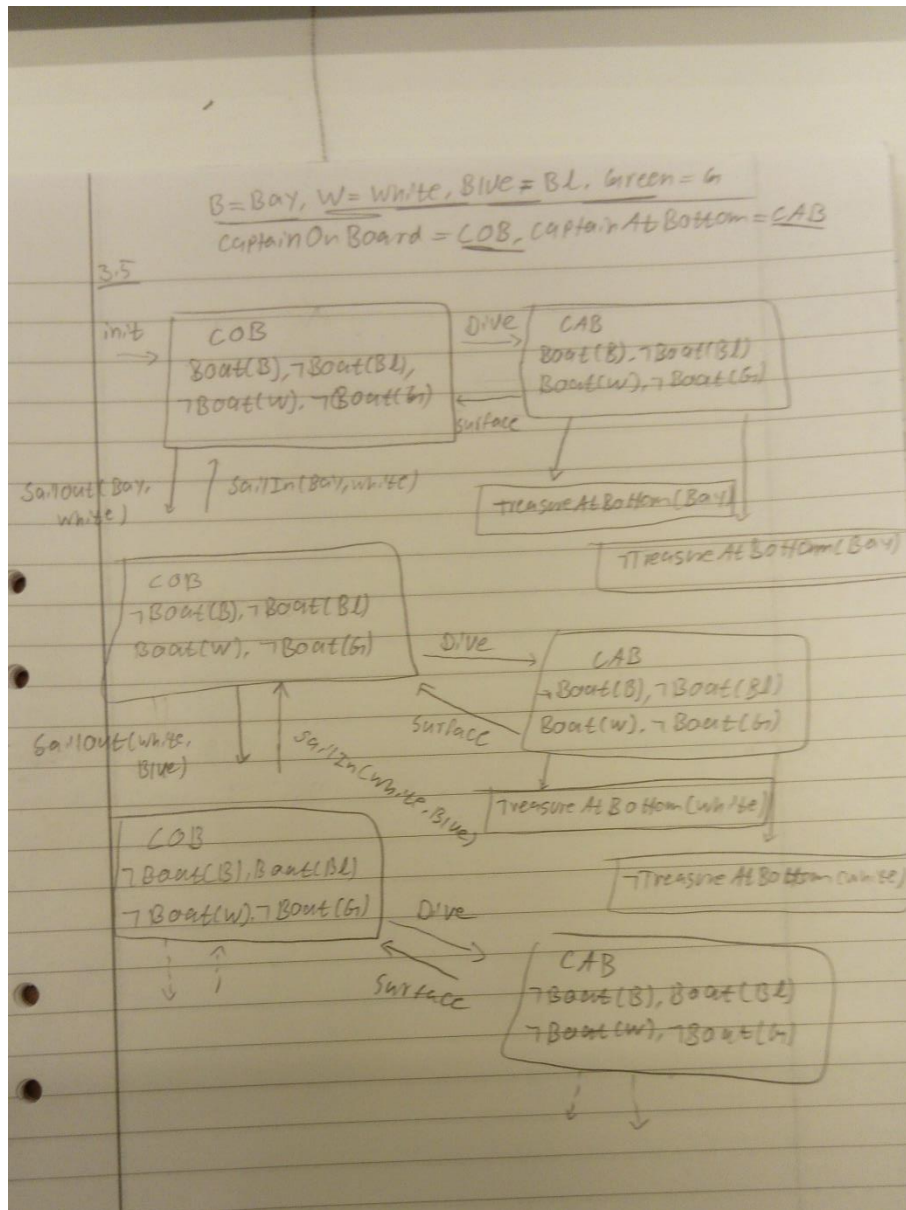 B=Bay, W=White, Blue=Bl, Green=G
CaptainOnBoard = COB, CaptainAtBottom=CAB
3.5
init
COB
Boat(B), ¬Boat(Bl),
¬Boat(W), ¬Boat(G)
Dive
Surface
CAB
Boat(B), ¬Boat(Bl)
Boat(W), ¬Boat(G)
SailOut(Bay,
White)
SailIn(Bay,White)
TreasureAtBottom(Bay)
¬TreasureAtBottom(Bay)
COB
¬Boat(B), ¬Boat(Bl)
Boat(W), ¬Boat(G)
Dive
Surface
CAB
¬Boat(B), ¬Boat(Bl)
Boat(W), ¬Boat(G)
SailOut(White,
Blue)
SailIn(White,Blue)
TreasureAtBottom(White)
¬TreasureAtBottom(White)
COB
¬Boat(B), Boat(Bl)
¬Boat(W), ¬Boat(G)
Dive
Surface
CAB
¬Boat(B), Boat(Bl)
¬Boat(W), ¬Boat(G)